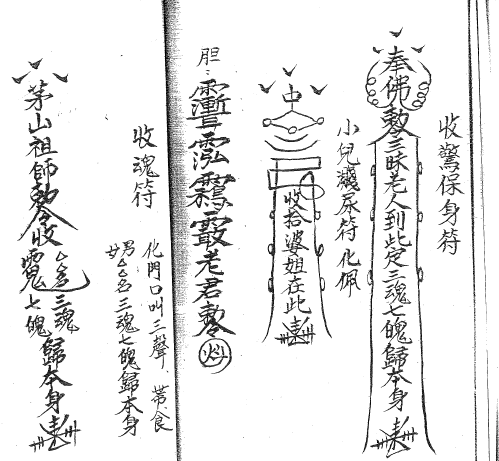 收驚保身符
奉佛勅三昧老人到此定三魂七魄歸本身
小兒濺尿符化佩
收拾婆姐在此
胆：
老君勅
收魂符
化門口叫三聲、帶食
男女厶厶名三魂七魄歸本身
茅山祖師勅令收
厶名三魂七魄歸本身